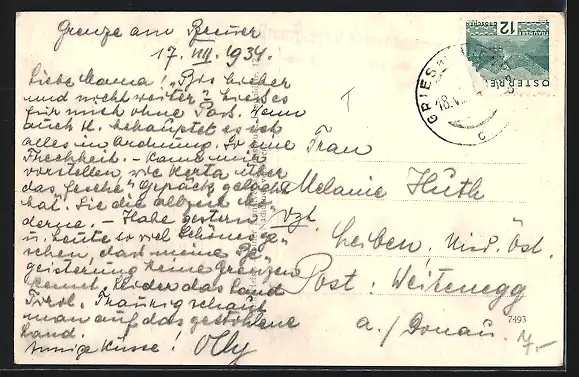 Grenze am Brenner
17. VIII. 1934.
Liebe Mama! "Bis hieher
und nicht weiter" hiess es
für mich ohne Pass. Wenn
auch H. behauptet es sei
alles in Ordnung. So eine
Frechheit. – Kann mir
vorstellen, wie Herta über
das "fesche" Gepäck gelacht
hat. Sie die
derne. – Habe gestern
u. heute so viel Schönes ge-
sehen, dass meine Be-
geisterung keine Grenzen
kennt. Leider das Land
Tirol. Traurig schaut
man auf das gestohlene
Land.
Innige Küsse! Olly
T
Frau
Melanie Hüth
Leiben. Nied. Öst.
Post: Weitenegg
a./Donau.
7493
7,-
12
GROSCHEN
ÖSTERREICH
GRIES A
18.V
C